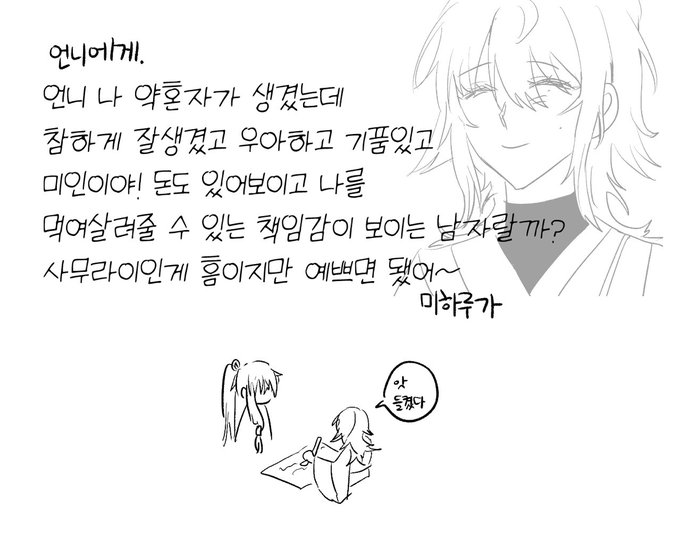 언니에게.
언니 나 약혼자가 생겼는데
참하게 잘생겼고 우아하고 기품있고
미인이야! 돈도 있어보이고 나를
먹여살려줄 수 있는 책임감이 보이는 남자랄까?
사무라이인게 흠이지만 예쁘면 됐어~
미하루가
앗
들켰다